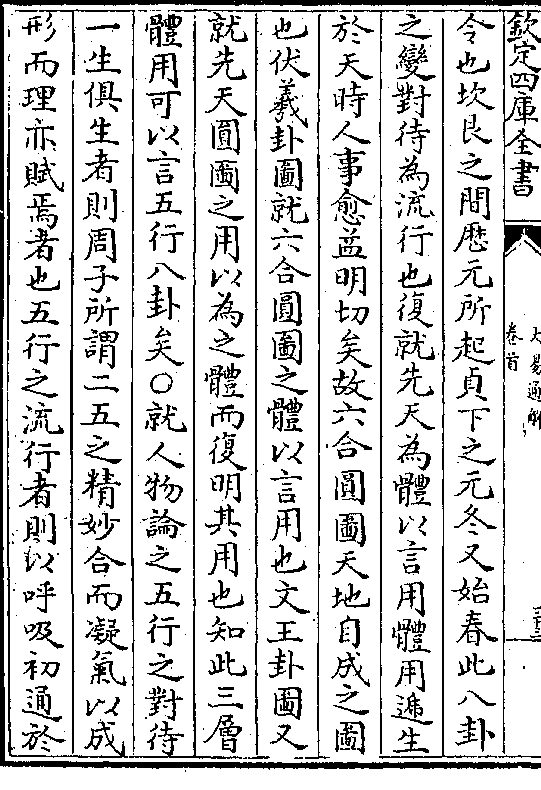 欽定四庫全書
大易通解
卷首
令也坎艮之間厯元所起貞下之元冬又始春此八卦
之變對待為流行也復就先天為體以言用體用遞生
於天時人事愈益明切矣故六合圓圖天地自成之圖
也伏羲卦圖就六合圓圖之體以言用也文王卦圖又
就先天圓圖之用以為之體而復明其用也知此三層
體用可以言五行八卦矣〇就人物論之五行之對待
一生俱生者則周子所謂二五之精妙合而凝氣以成
形而理亦賦焉者也五行之流行者則以呼吸初通於